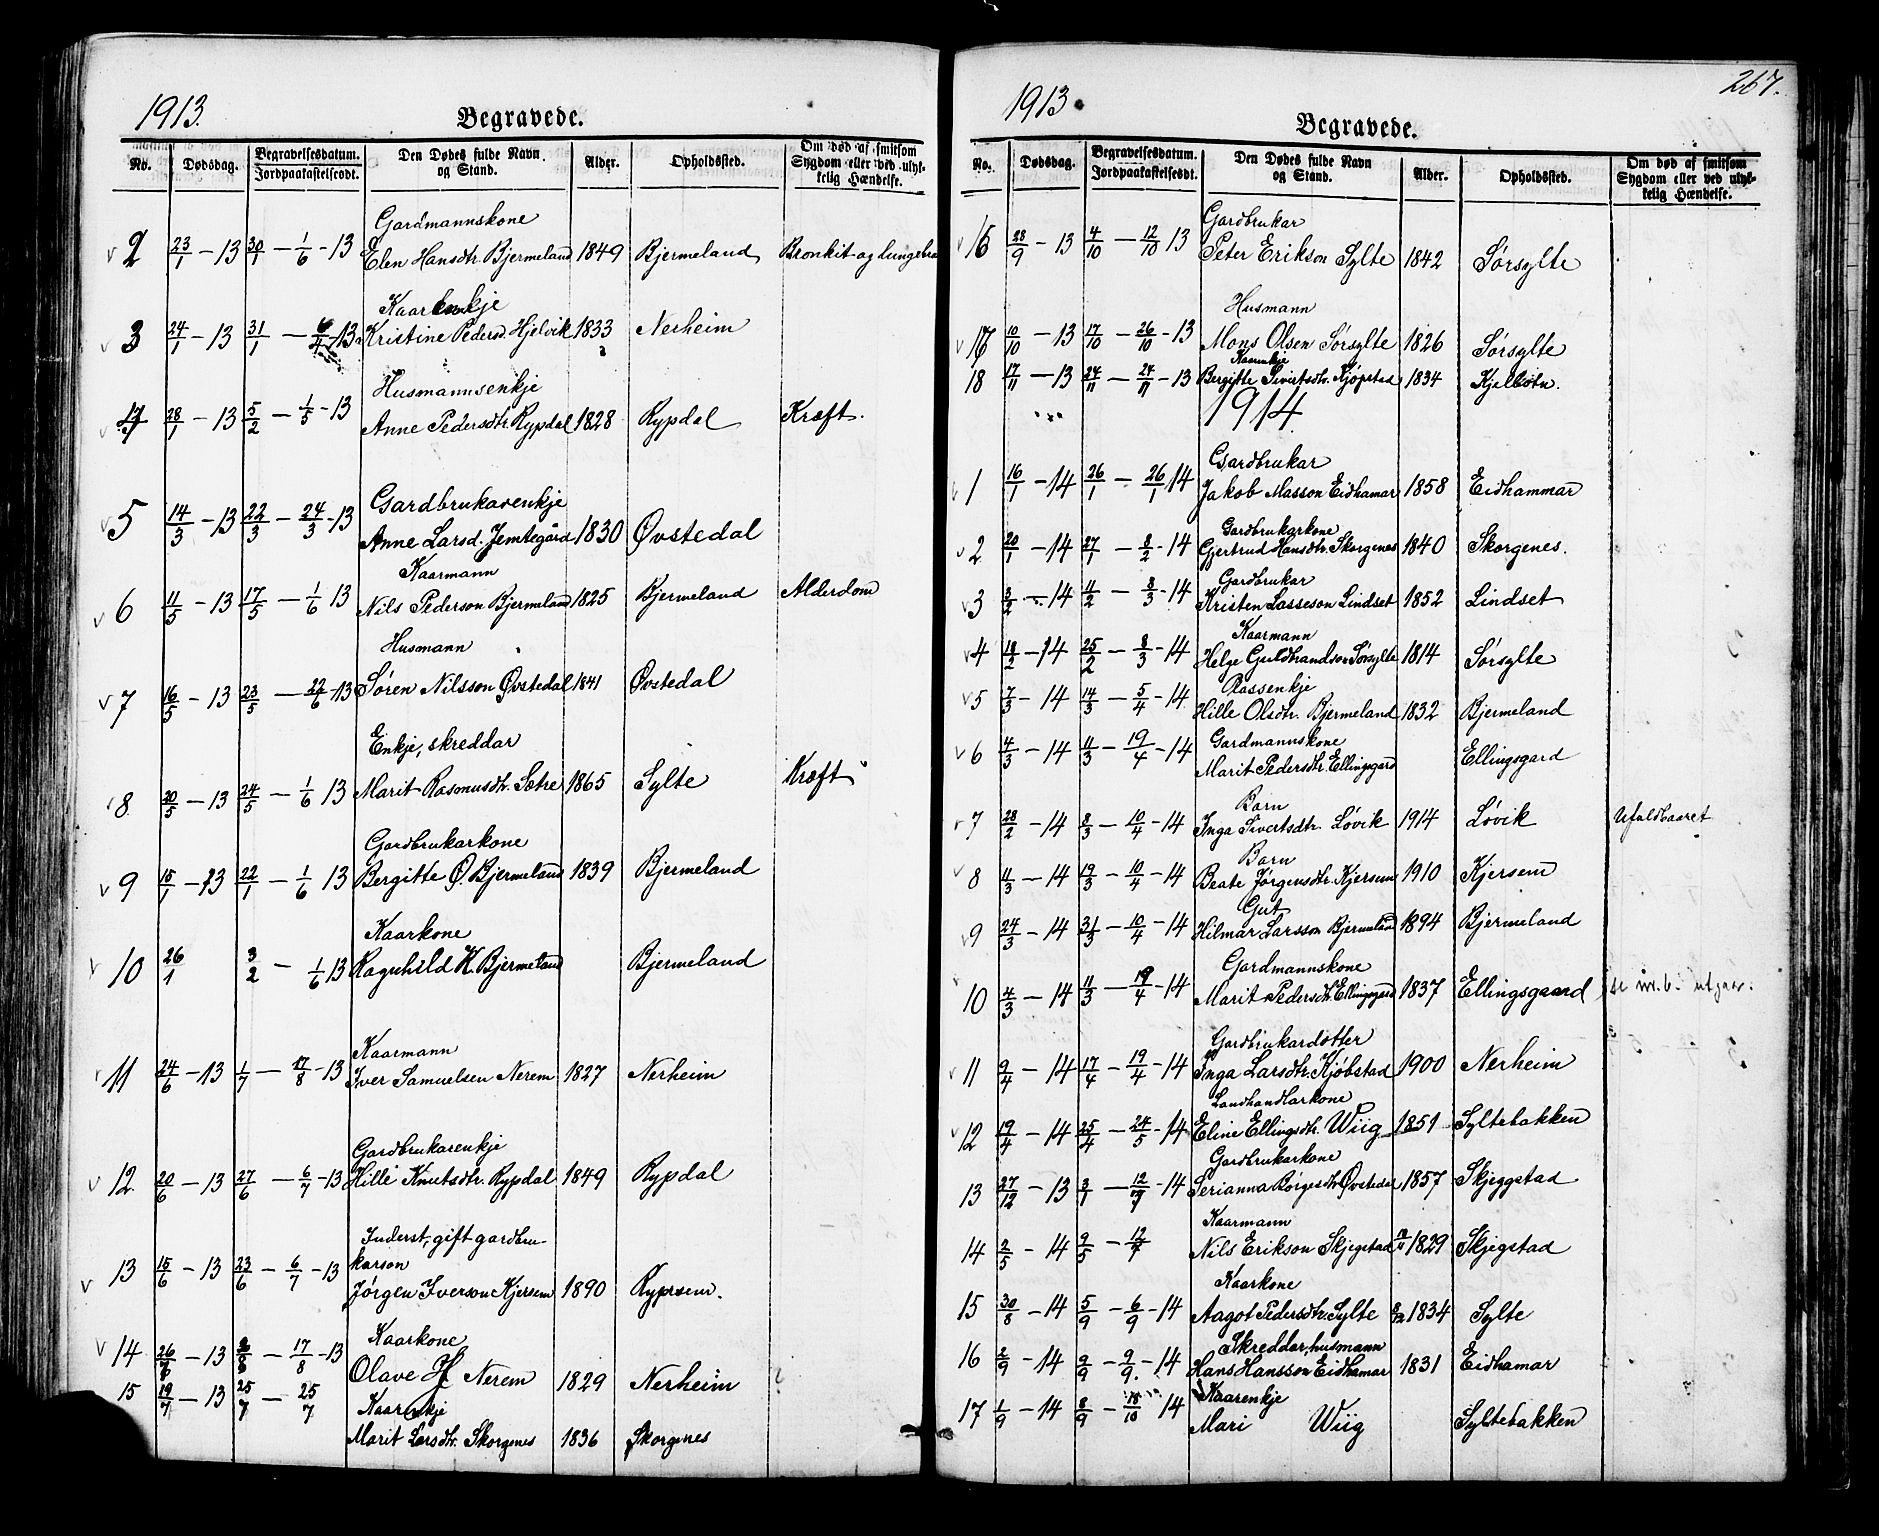 1913.
Begravede.
No. Dødsdag. Begravelsesdatum. Jordpaakastelsesdt. Den Dødes fulde Navn og Stand. Alder. Opholdssted. Om død af smitsom Sygdom eller ved ulykkelig Hændelse.
Gardmannskone
2 23/1 - 13 30/1 - 1/6 - 13 Elen Hansdtr. Bjermeland 1849 Bjermeland Bronkit og lungebe
Kaarenkje
3 24/1 - 13 31/1 - 13 Kristine Pedersd. Hjelvik 1833 Nerheim
Husmannsenkje
4 28/1 - 13 5/2 - 1/5 - 13 Anne Pedersdtr. Rypdal 1828 Rypdal Kræft.
Gardbrukarenkje
5 14/3 - 13 22/3 - 24/3 - 13 Anne Larsd. Jemtegård 1830 Øvstedal
Kaarmann
6 11/5 - 13 17/5 - 1/6 13 Nils Pederson Bjermeland 1825 Bjermeland Alderdom
Husmann
7 16/5 - 13 23/5 - 22/6 - 13 Søren Nilsson Øvstedal 1841 Øvstedal
Enkje, skreddar
8 20/5 - 13 24/5 - 1/6 13 Marit Rasmusdtr. Sætre 1865 Sylte Kræft
Gardbrukarkone
9 15/1 - 13 22/1 - 1/6 13 Bergitte O. Bjermeland 1839 Bjermeland
Kaarkone
10 26/1 3/2 - 1/6 13 Ragnhild K. Bjermeland Bjermeland
Kaarmann
11 24/6 - 13 1/7 - 17/8 - 13 Iver Samuelsen Nerem 1827 Nerheim
Gardbrukarenkje
12. 20/6 - 13 27/6 - 6/7 - 13 Hille Knutsdtr. Rypdal 1849 Rypdal
Inderst, gift gardbru-
karson
13 15/6 - 13 23/6 - 6/7 - 13 Jørgen Iverson Kjersem 1890
Kaarkone
14 26/7 - 13 2/8 - 17/8 - 13 Olave Nerem 1829 Nerheim ?
15 19/7 - 13 25/7 - 25/7 Kaarenkje
Marit Larsdtr. Skorgenes 1836 Skorgenes
267.
1913.
Begravede.
No. Dødsdag. Begravelsesdatum. Jordpaakastelsesdt. Den Dødes fulde Navn og Stand. Alder. Opholdssted. Om død af smitsom Sygdom eller ved ulykkelig Hændelse.
Gardbrukar
16 28/9 - 13 4/10 - 12/10 13 Peter Erikson Sylte 1842 Sørsylte
Husmann
17 10/10 - 13 17/10 - 26/10 - 13 Mons Olsen Sørsylte 1826 Sørsylte
Kaarenkje
18 17/11 - 13 24/11 - 24/11 - 13 Bergitte Sivertsdtr. Kjøpstad 1834 Kjelbotn.
1914
Gardbrukar
1 16/1 - 14 26/1 - 26/1 14 Jakob Masson Eidhamar 1858 Eidhammar
Gardbrukarkone
2 20/1 - 14 27/1 - 8/2 - 14 Gjertrud Hansdtr. Skorgenes 1840 Skorgenes.
Gardbrukar
3 3/2 - 14 11/2 - 8/3 - 14 Kristen Lasseson Lindset 1852 Lindset
Kaarmann
4 18/2 - 14 25/2 - 8/3 - 14 Helge Guldbrandson Sørsylte 1814 Sørsylte
Plassenkje
5 7/3 - 14 14/3 - 5/4 - 14 Hille Olsdtr. Bjermeland 1832 Bjermeland
Gardmannskone
6 4/3 - 14 11/3 - 19/4 - 14 Marit Pedersdtr. Ellingsgard Ellingsgard
Barn
7 28/2 - 14 8/3 - 10/4 - 14 Inga Sivertsdtr. Løvik 1914 Løvik Ufuldbaaret
Barn
8 11/3 - 14 19/3 - 10/4 - 14 Beate Jørgensdtr. Kjersem 1910 Kjersem
Gut
9 24/3 - 14 31/3 - 10/4 - 14 Hilmar Larsson Bjermeland 1894 Bjermeland
Gardmannskone
10 4/3 - 14 11/3 - 19/4 - 14 Marit Pedersdtr. Ellingsgard 1837 Ellingsgaard se nr. 6 utgaar.
Gardbrukardotter
11 9/4 - 14 17/4 - 19/4 - 14 Inga Larsdtr. Kjøbstad 1900 Nerheim
Landhandlarkone
12 19/4 - 14 25/4 - 24/5 - 14 Eline Ellingsdtr. Wiig 1851 Syltebakken
Gardbrukarkone
13 27/12 - 13 3/1 - 12/7 - 14 Serianna Børgesdtr. Øvstedal 1857 Skjeggstad
Kaarmann
14 2/5 - 14 9/5 - 12/7 Nils Erikson Skjegstad 1829 Skjegstad
Kaarkone
15 30/8 - 14 5/9 - 6/9 - 14 Aagot Pedersdtr. Sylte 1834 Sylte
Skreddar, husmann
16 2/9 - 14 9/9 - 9/9. - 14 Hans Hansson Eidhamar 1831 Eidhamar
Kaarenkje
17 1/9 - 14 8/9 - 18/10 14 Mari Wiig Syltebakken